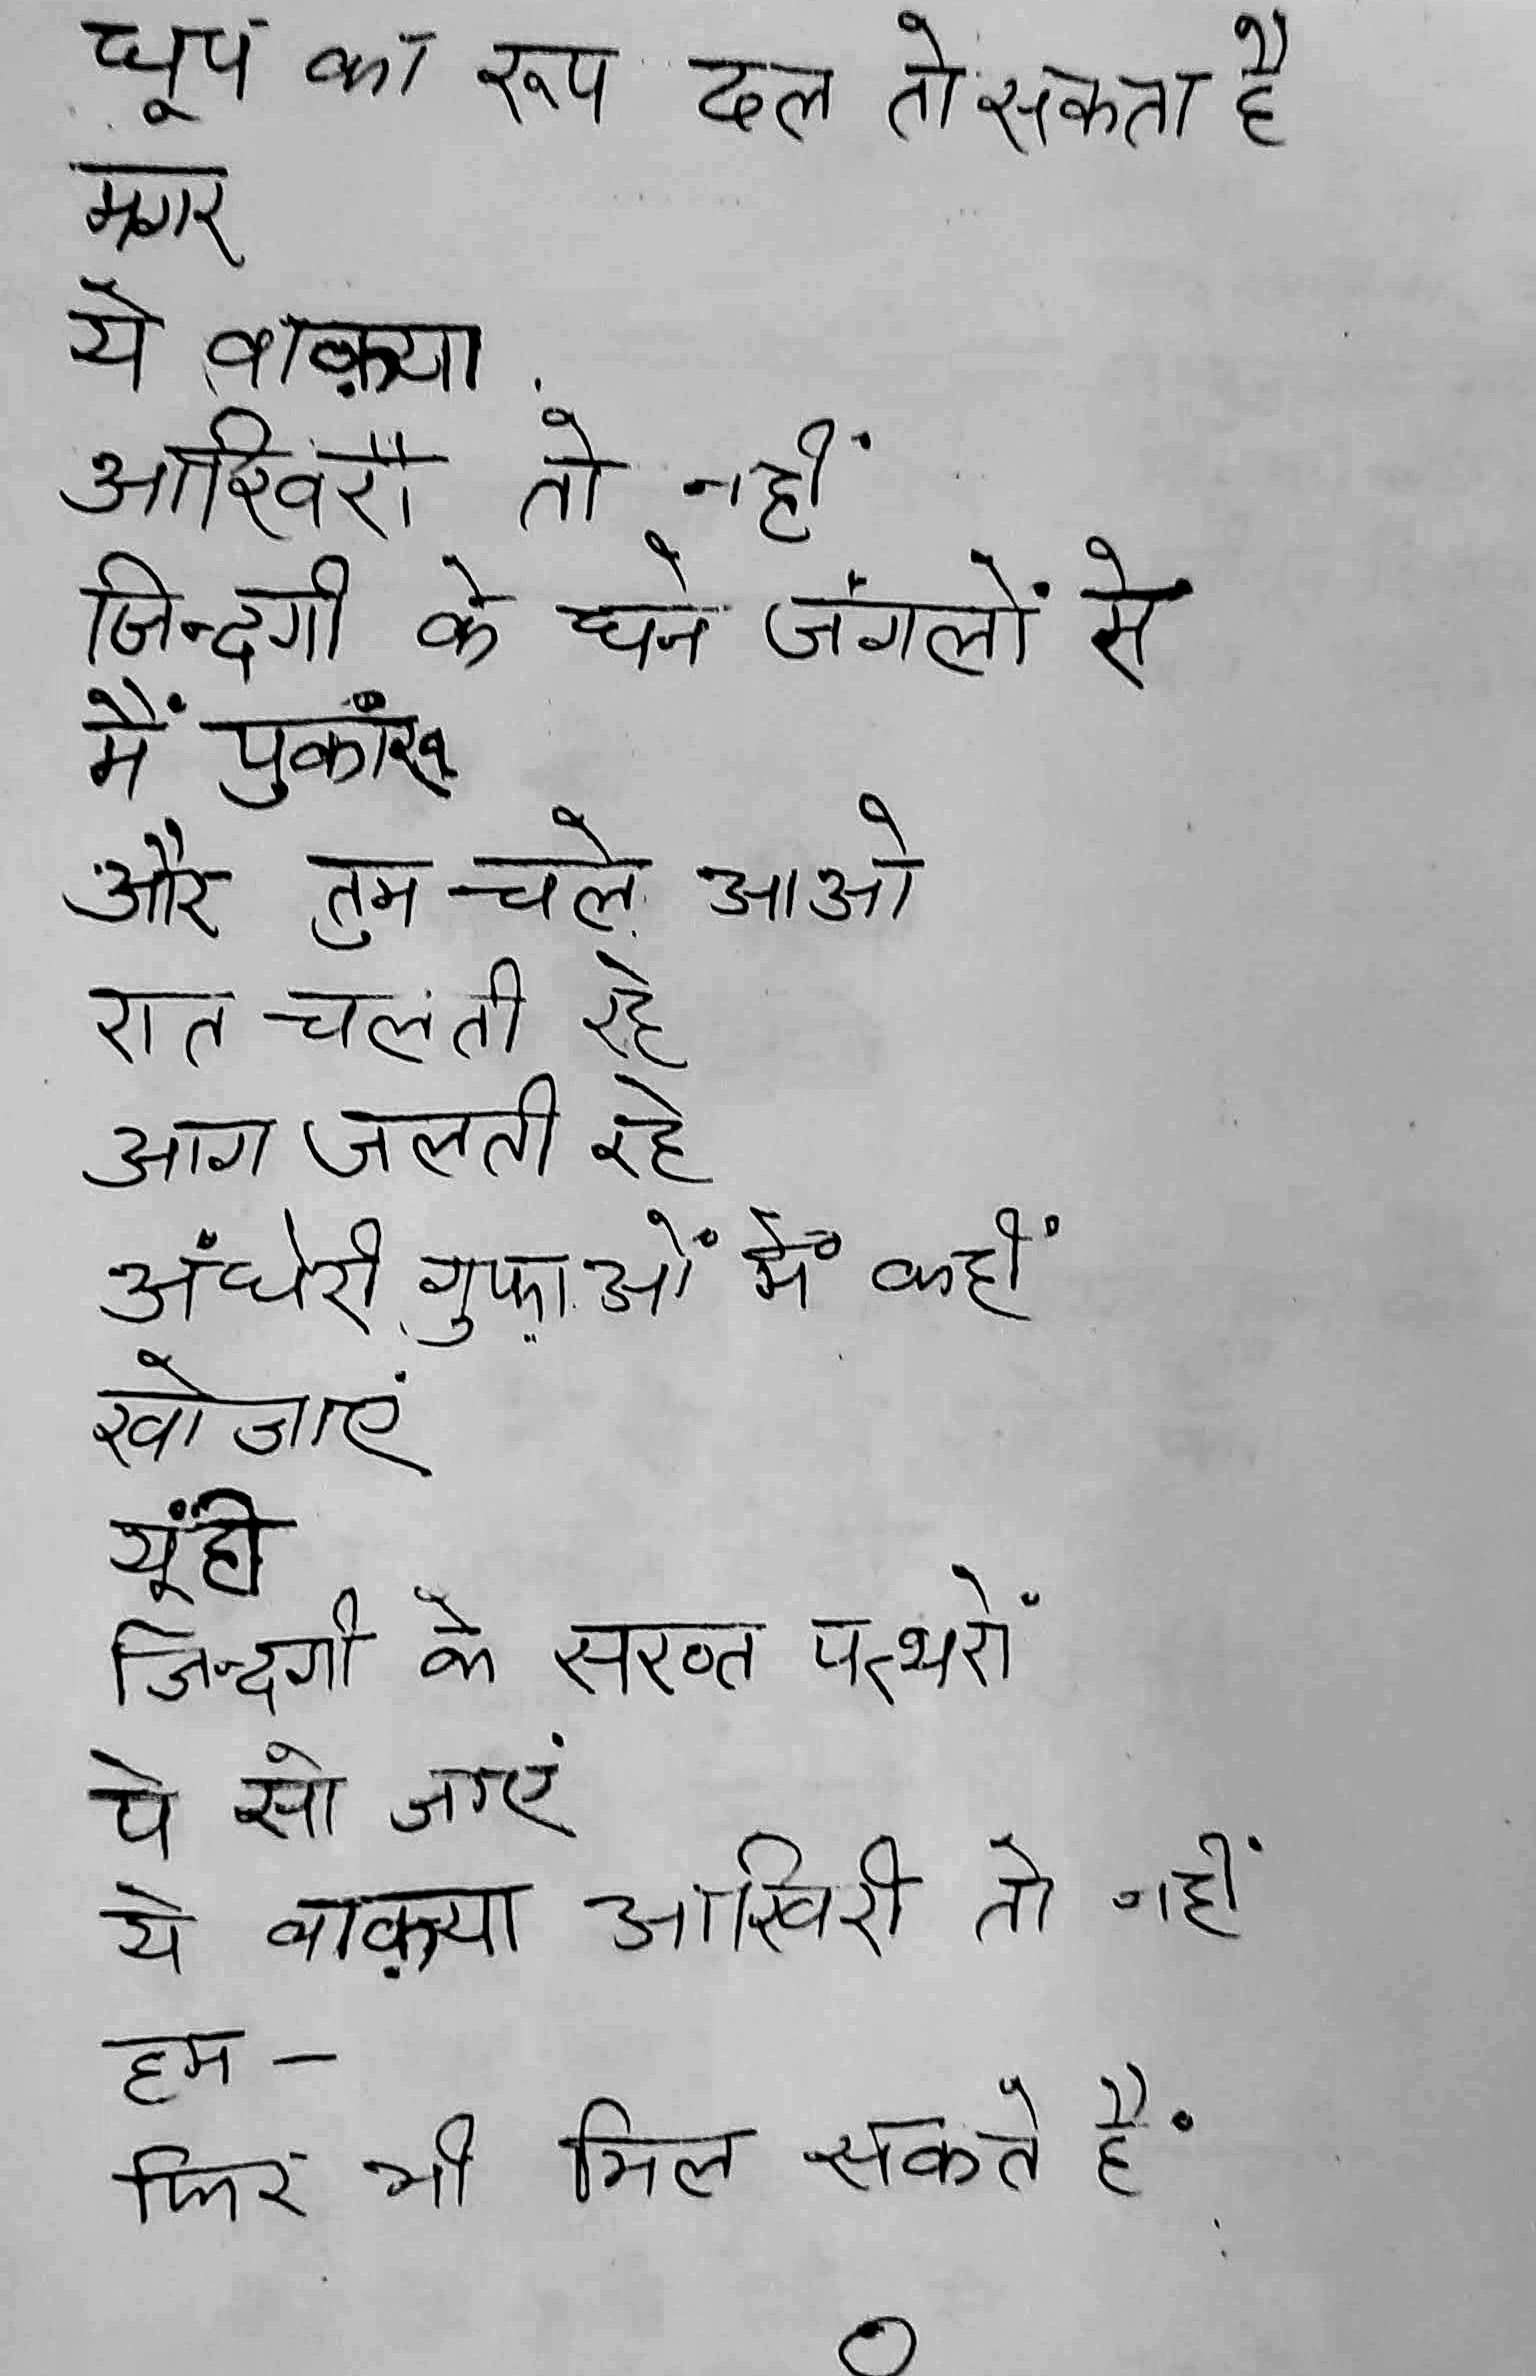 धूप का रूप ढल तो सकता है
मगर
ये वाक़्या
आखिरी तो नहीं
जिन्दगी के घने जंगलों से
मैं पुकारू
और तुम चले आओ
रात चलती रहे
आग जलती रहे
अंधेरी गुफ़ाओं में कहीं
खो जाएं
यूंही
जिन्दगी के सख्त पत्थरों
पे सो जाएं
ये वाक़्या आखिरी तो नहीं
हम –
फिर भी मिल सकते हैं